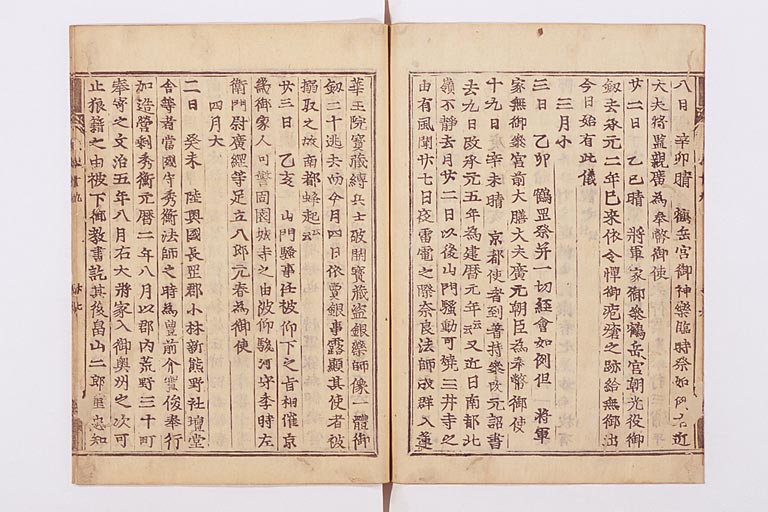 八日　辛卯晴　鶴岳宮御神樂臨時祭如例右近
大夫将監親廣為奉幣御使
廿二日　乙巳晴　将軍家御參鶴岳宮朝光役御
釼去承元二年已來依令憚御疱瘡之跡給無御出
今日始有此儀
三月小
三日　乙卯　鶴罡發并一切經會如例但　将軍
家無御參宮前大膳大夫廣元朝臣為奉幣御使
十九日　辛未晴　京都使者到着持參改元詔書
去九日改承元五年為建暦元年云又近日南都北
嶺不静去月廿二日以後山門騒動可燒三井寺之
由有風聞廿七日夜雷電之際奈良法師成群入蓮
華王院寳蔵縛兵士破開寳蔵盗銀藥師像一體御
釼二十逃去仍今月四日依賣銀事露顯其使者被
搦取之城南都蜂起云
廿三日　乙亥　山門騒事任被仰下之旨相催京
畿御家人可警固園城寺之由被仰駿河守季時左
衛門尉廣綱等足立八郎元春為御使
四月大
二日　癸未　陸奥國長罡郡小林新熊野社壇堂
舎等者當國守秀衡法師之時為豊前介實俊奉行
加造營剰秀衡元暦二年八月以郡内荒野三十町
奉寄之文治五年八月右大将家入御奥州之次可
止狼籍之由被下御教書訖其後畠山二郎重忠知